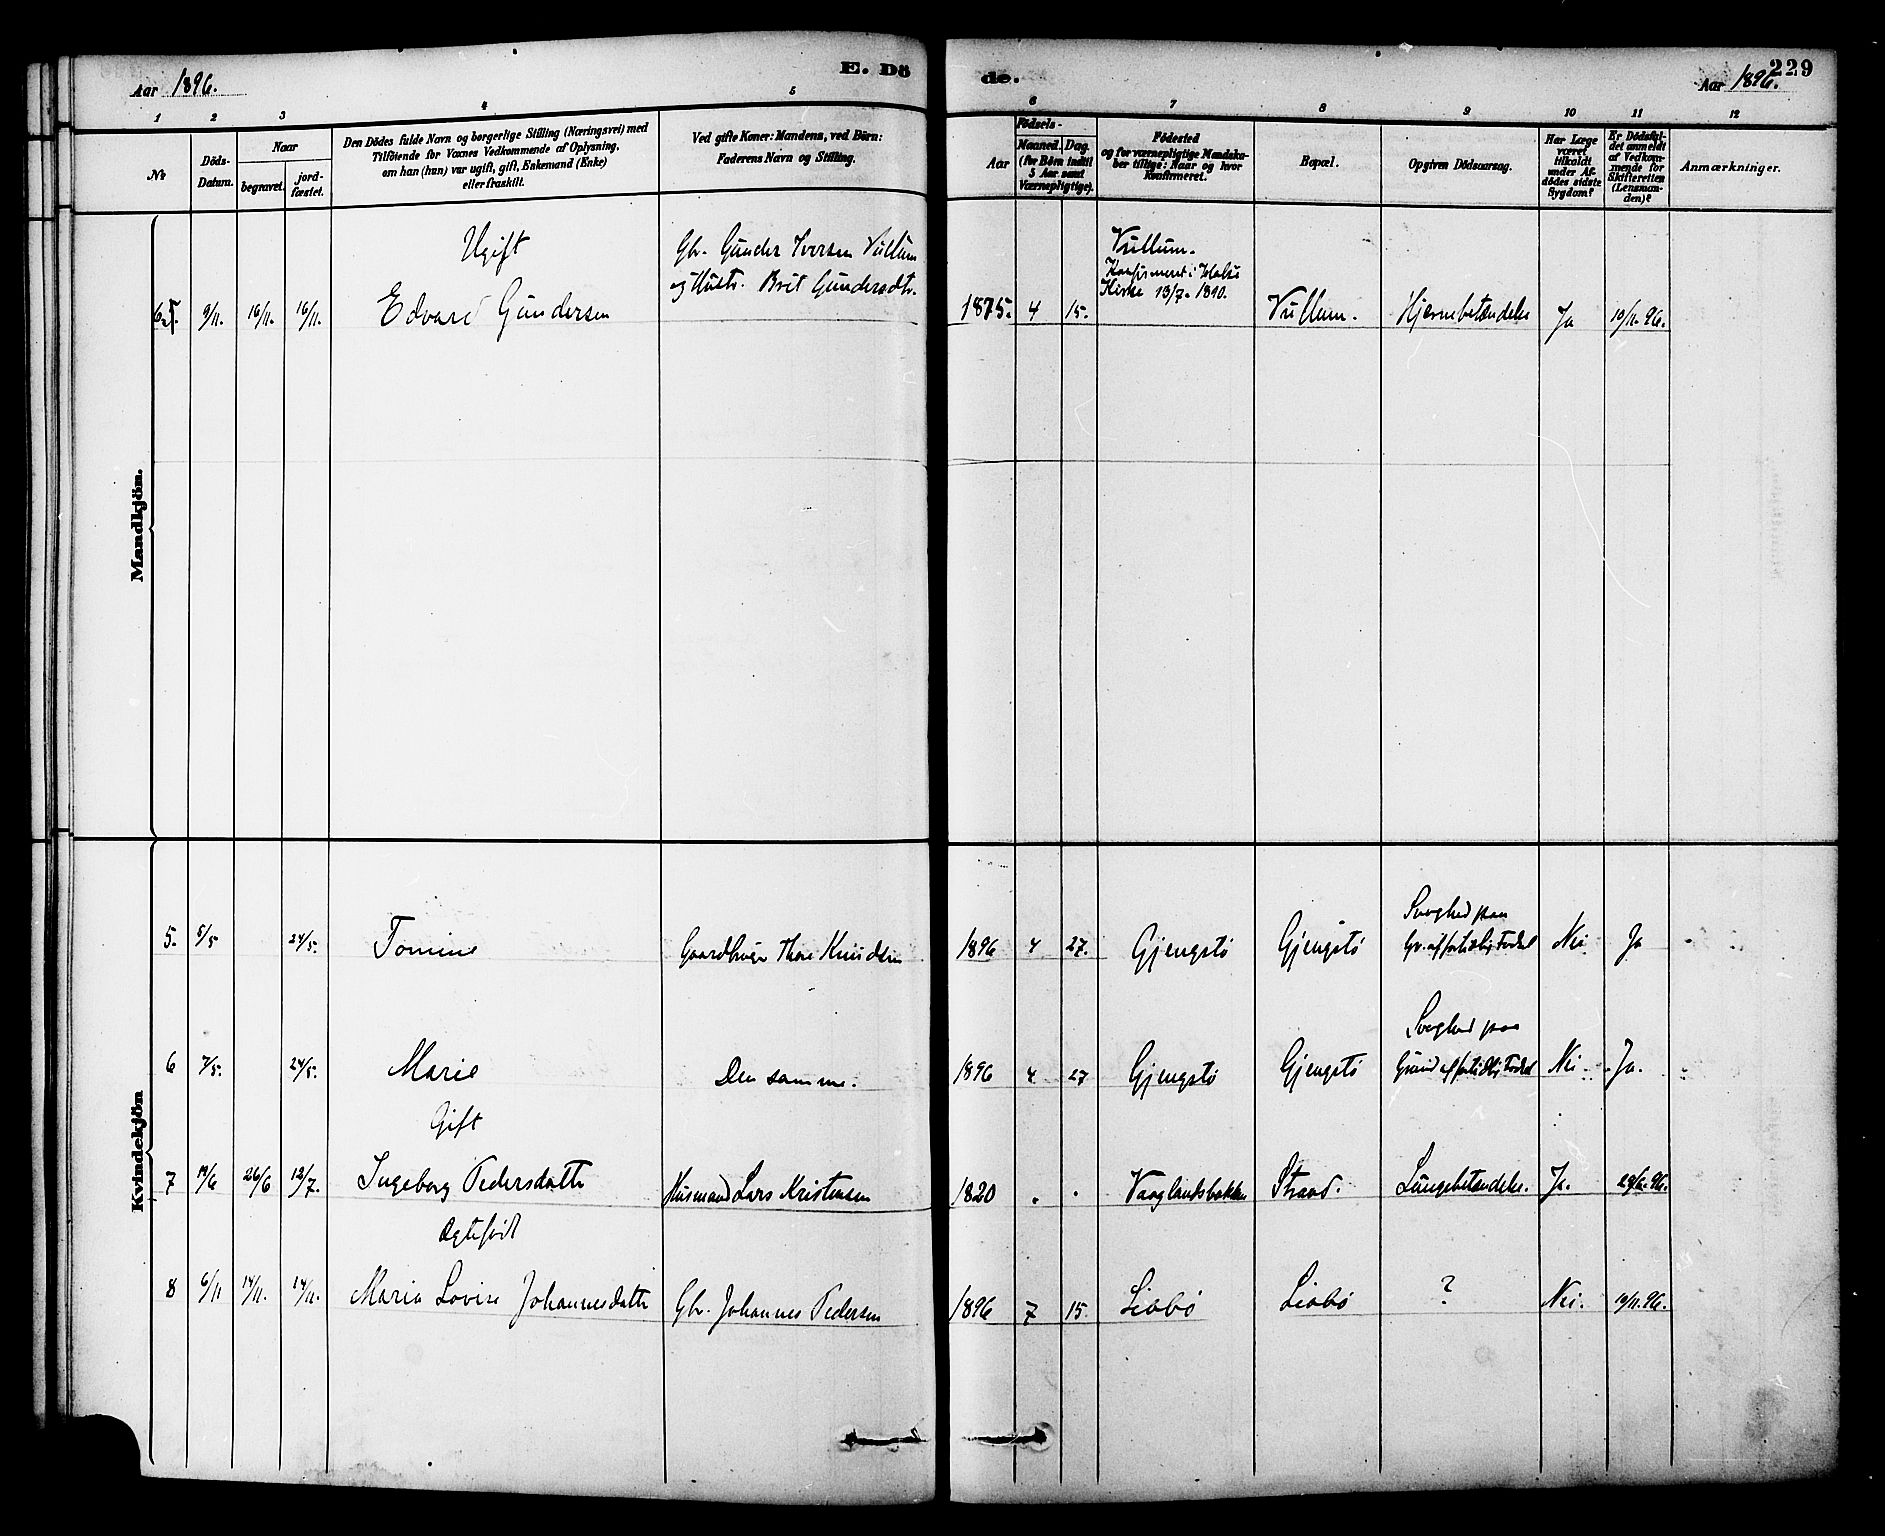 Aar 1896.
E. Dö
de.
Aar 1896.
229
1 2 3 4 5 6 7 8 9 10 11 12
No
Döds-
Datum.
Naar
begravet.
jord-
fæstet.
Den Dödes fulde Navn og borgerlige Stilling (Næringsvei) med
Tilföiende for Voxnes Vedkommende af Oplysning,
om han (hun) var ugift, gift, Enkemand (Enke)
eller fraskilt.
Ved gifte Koner: Mandens, ved Börn:
Faderens Navn og Stilling.
Aar
Födsels-
Maaned. Dag.
(for Börn indtil
5 Aar samt
Værnepligtige).
Födested
og for værnepligtige Mandska-
ber tillige: Naar og hvor
konfirmeret.
Bopæl.
Opgiven Dödsaarsag.
Har Læge
været
tilkaldt
under Af-
dödes sidste
Sygdom?
Er Dödsfal-
det anmeldt
af Vedkom-
mende for
Skifteretten
(Lensman-
den)?
Anmærkninger.
Mandkjön.
Ugift
Gbr. Gunder Iversen Vullum
og Hustr. Brit Gundersdtr.
Vullum.
Konfirmeret i Halse
Kirke 13/7. 1890.
5. 9/11. 16/11. 16/11. Edvard Gundersen 1875. 4 15. Vullum. Hjernebetændelse Ja 10/11. 96.
Kvindekjön
Svaghed paa
5. 5/5 24/5. Tomine Gaardbruger Thore Knudsen 1896 4 27. Gjengstö Gjengstö Gr. af fortidlig Fødsel Nei Ja
Svaghed paa
6 7/5. 24/5. Marie Den samme. 1896 4 27 Gjengstö Gjengstö Grund af fortidlig Fødsel Nei. Ja.
Gift
7 19/6 26/6 12/7. Ingeborg Pedersdatter Husmand Lars Kristensen 1820 . . Vaaglandsbakken Strand. Lungebetændelse. Ja. 29/6. 96.
Ægtefödt
8 6/11 14/11. 14/11. Maria Lovise Johannesdatter Gbr. Johannes Pedersen 1896 7 15. Liabö Liabö ? Nei. 10/11. 96.